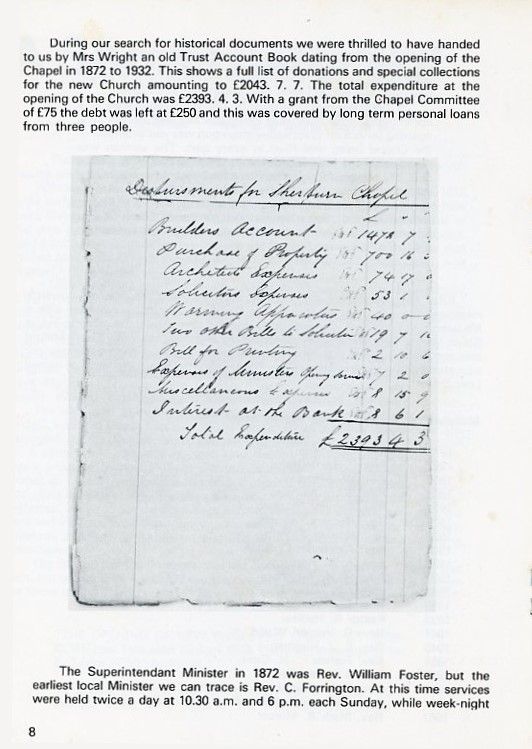 During our search for historical documents we were thrilled to have handed
to us by Mrs Wright an old Trust Account Book dating from the opening of the
Chapel in 1872 to 1932. This shows a full list of donations and special collections
for the new Church amounting to £2043. 7. 7. The total expenditure at the
opening of the Church was £2393. 4. 3. With a grant from the Chapel Committee
of £75 the debt was left at £250 and this was covered by long term personal loans
from three people.
Disbursments for Sherburn Chapel
£
Builders Account 1478 7
Purchase of Property 700 16
Architects Expenses 74 17
Solicitors Expenses 53 1
Warming Apparatus 40 0 0
Two other Bills to Solicitor 19 7
Bill for Printing 2 10 6
Expenses of Ministers Opening 7 2 0
Miscellaneous Expenses 8 15 9
Interest at the Bank 8 6 1
Total Expenditure £2393 4 3
The Superintendant Minister in 1872 was Rev. William Foster, but the
earliest local Minister we can trace is Rev. C. Forrington. At this time services
were held twice a day at 10.30 a.m. and 6 p.m. each Sunday, while week-night
8